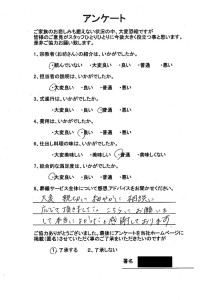 アンケート
ご家族のお悲しみも癒えない状況の中、大変恐縮ですが
皆様のご意見がスタッフひとりひとりに今後大きく役立つ事と思います。
是非ご協力お願い致します。
1. 宗教者(お給さん)の紹介は、いかがでしたか。
・頼んでいない ・大変良い ・良い ・普通 ・悪い
2. 担当者の説明は、いかがでしたか。
・大変良い ・良い ・普通 ・悪い
3. 式進行は、いかがでしたか。
・大変良い ・良い ・普通 ・悪い
4. 費用は、いかがでしたか。
・大変良い ・良い ・普通 ・悪い
5. 仕出し料理の味は、いかがでしたか。
・大変美味しい ・美味しい ・普通 ・悪い
7. 総合的な満足度は、いかがでしたか。
・大変良い ・良い ・普通 ・悪い
8. 斎種サービス全体について感想、アドバイスをお聞かせください。
大変 親切に 細やかに 相談に
応じて頂きました。こちらに お願いを
して 本当に よかったと 感謝しております
ご協力ありがとうございました。最後にアンケートを当社ホームページに
掲載(匿名)させていただく事のご了承をいただきたいのですが
1. 了承する 2. 了承しない
署名